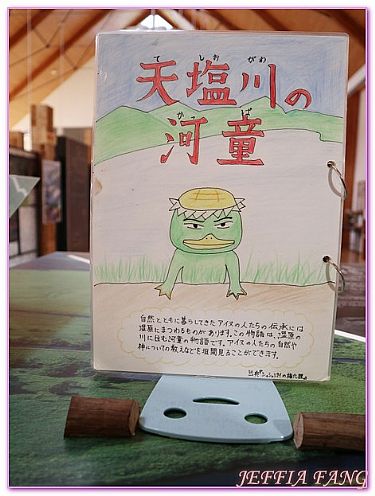 てしおがわ
天塩川の
かっぱ
河童
自然とともに暮らしてきたアイヌの人たちの伝承には
湿原にまつわるものがあります。この物語は、湿原の
川に住む河童の物語です。アイヌの人たちの自然や
神についての教えなどを垣間見ることができます。
JEFFIA FANG